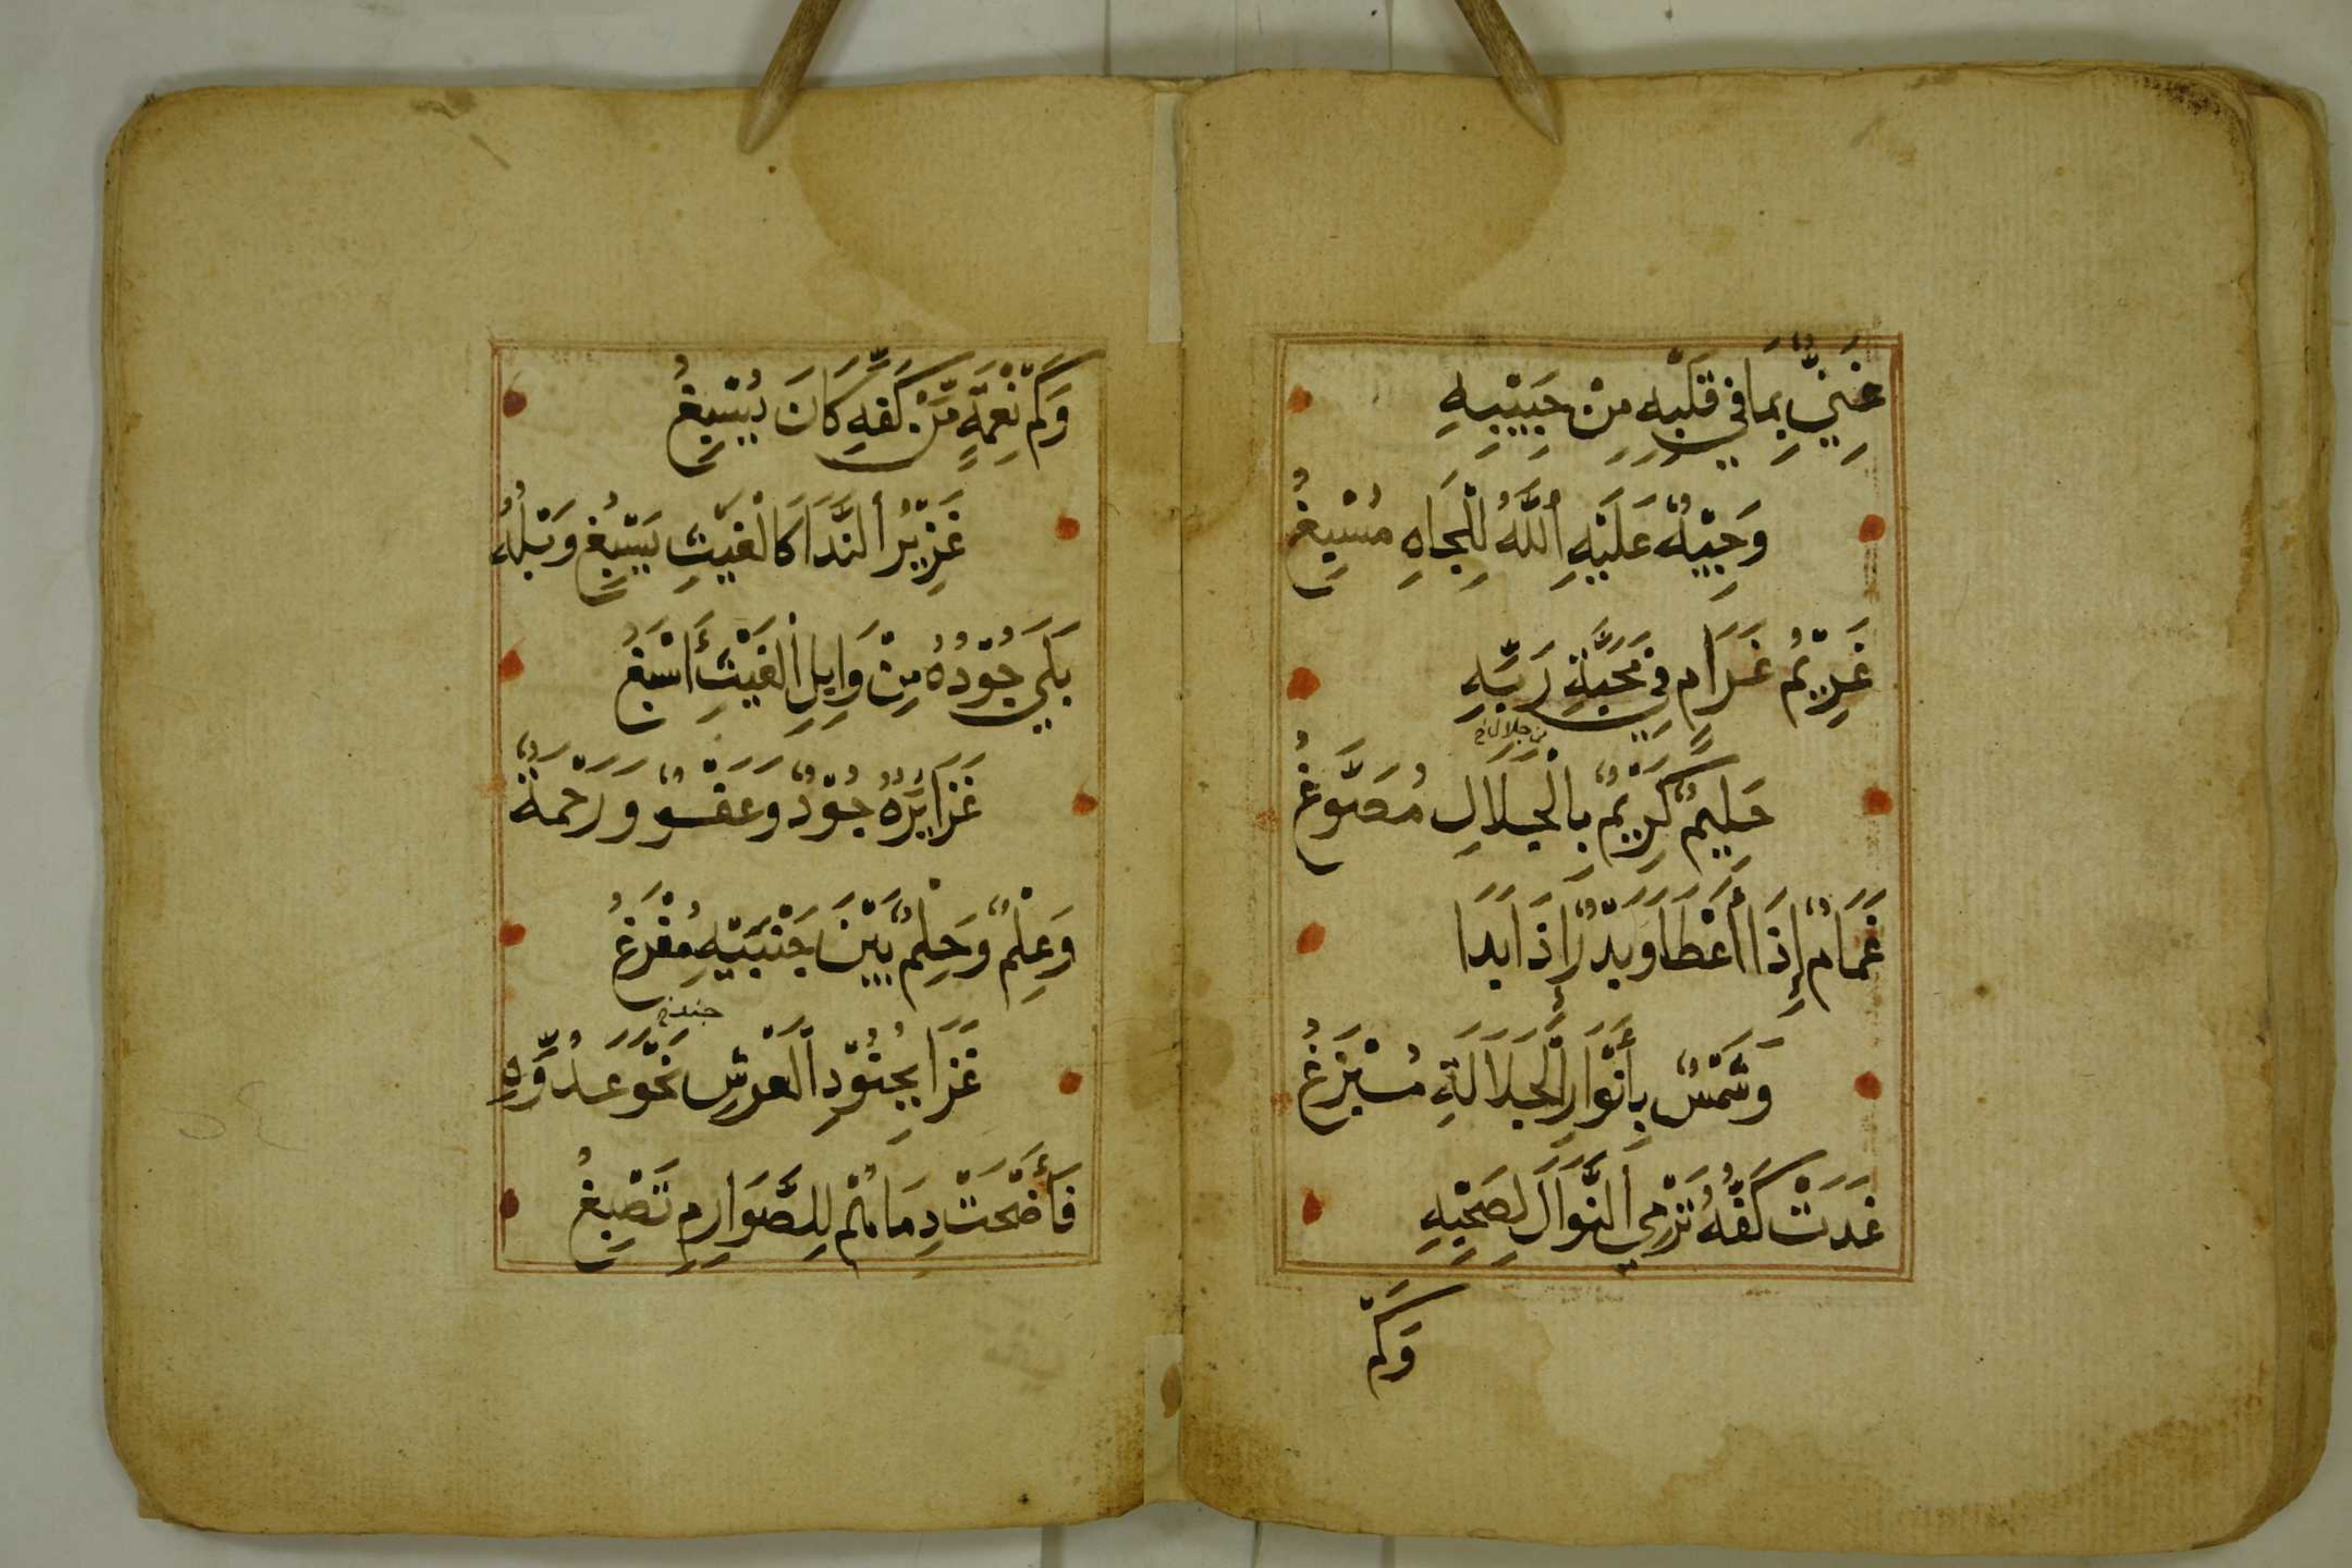 غَنِيٌّ بِمَا فِي قَلْبِهِ مِنْ حَبِيْبِهِ
وَجِيْهٌ عَلَيْهِ اللَّهُ لِلْجَاهِ مُسْبِغُ
غَرِيْمُ غَرَامٍ فِي مَحَبَّةِ رَبِّهِ
من جلال خ
حَلِيمٌ كَرِيْمٌ بِالْجَلَالِ مُصَوَّغُ
غَمَامٌ إِذَا أَعْطَا وَبَدْرٌ إِذَا بَدَا
وَشَمْسٌ بِأَنْوَارِ الْجَلَالَةِ تَبْزَغُ
غَدَتْ كَفُّهُ تَرْمِي النَّوَالَ لِصَحْبِهِ
وَكَمْ
وَكَمْ نِعْمَةٍ مِّنْ كَفِّهِ كَانَ يُسْبِغُ
غَزِيْرُ النَّدَا كَالْغَيْثِ يَسْبُغُ وَبْلُهُ
بَلَى جُوْدُهُ مِنْ وَابِلِ الْغَيْثِ أَسْبَغُ
غَزَايِرُهُ جُوْدٌ وَعَفْوٌ وَرَحْمَةٌ
وَعِلْمٌ وَحِلْمٌ بَيْنَ جَنْبَيْهِ مُفْرَغُ
جند خ
غَزَا بِجُنُوْدِ الْعَرْشِ نَحْوَ عَدُوِّهِ
فَأَضْحَتْ دِمَاهُمْ لِلصَّوَارِمِ تَصْبِغُ